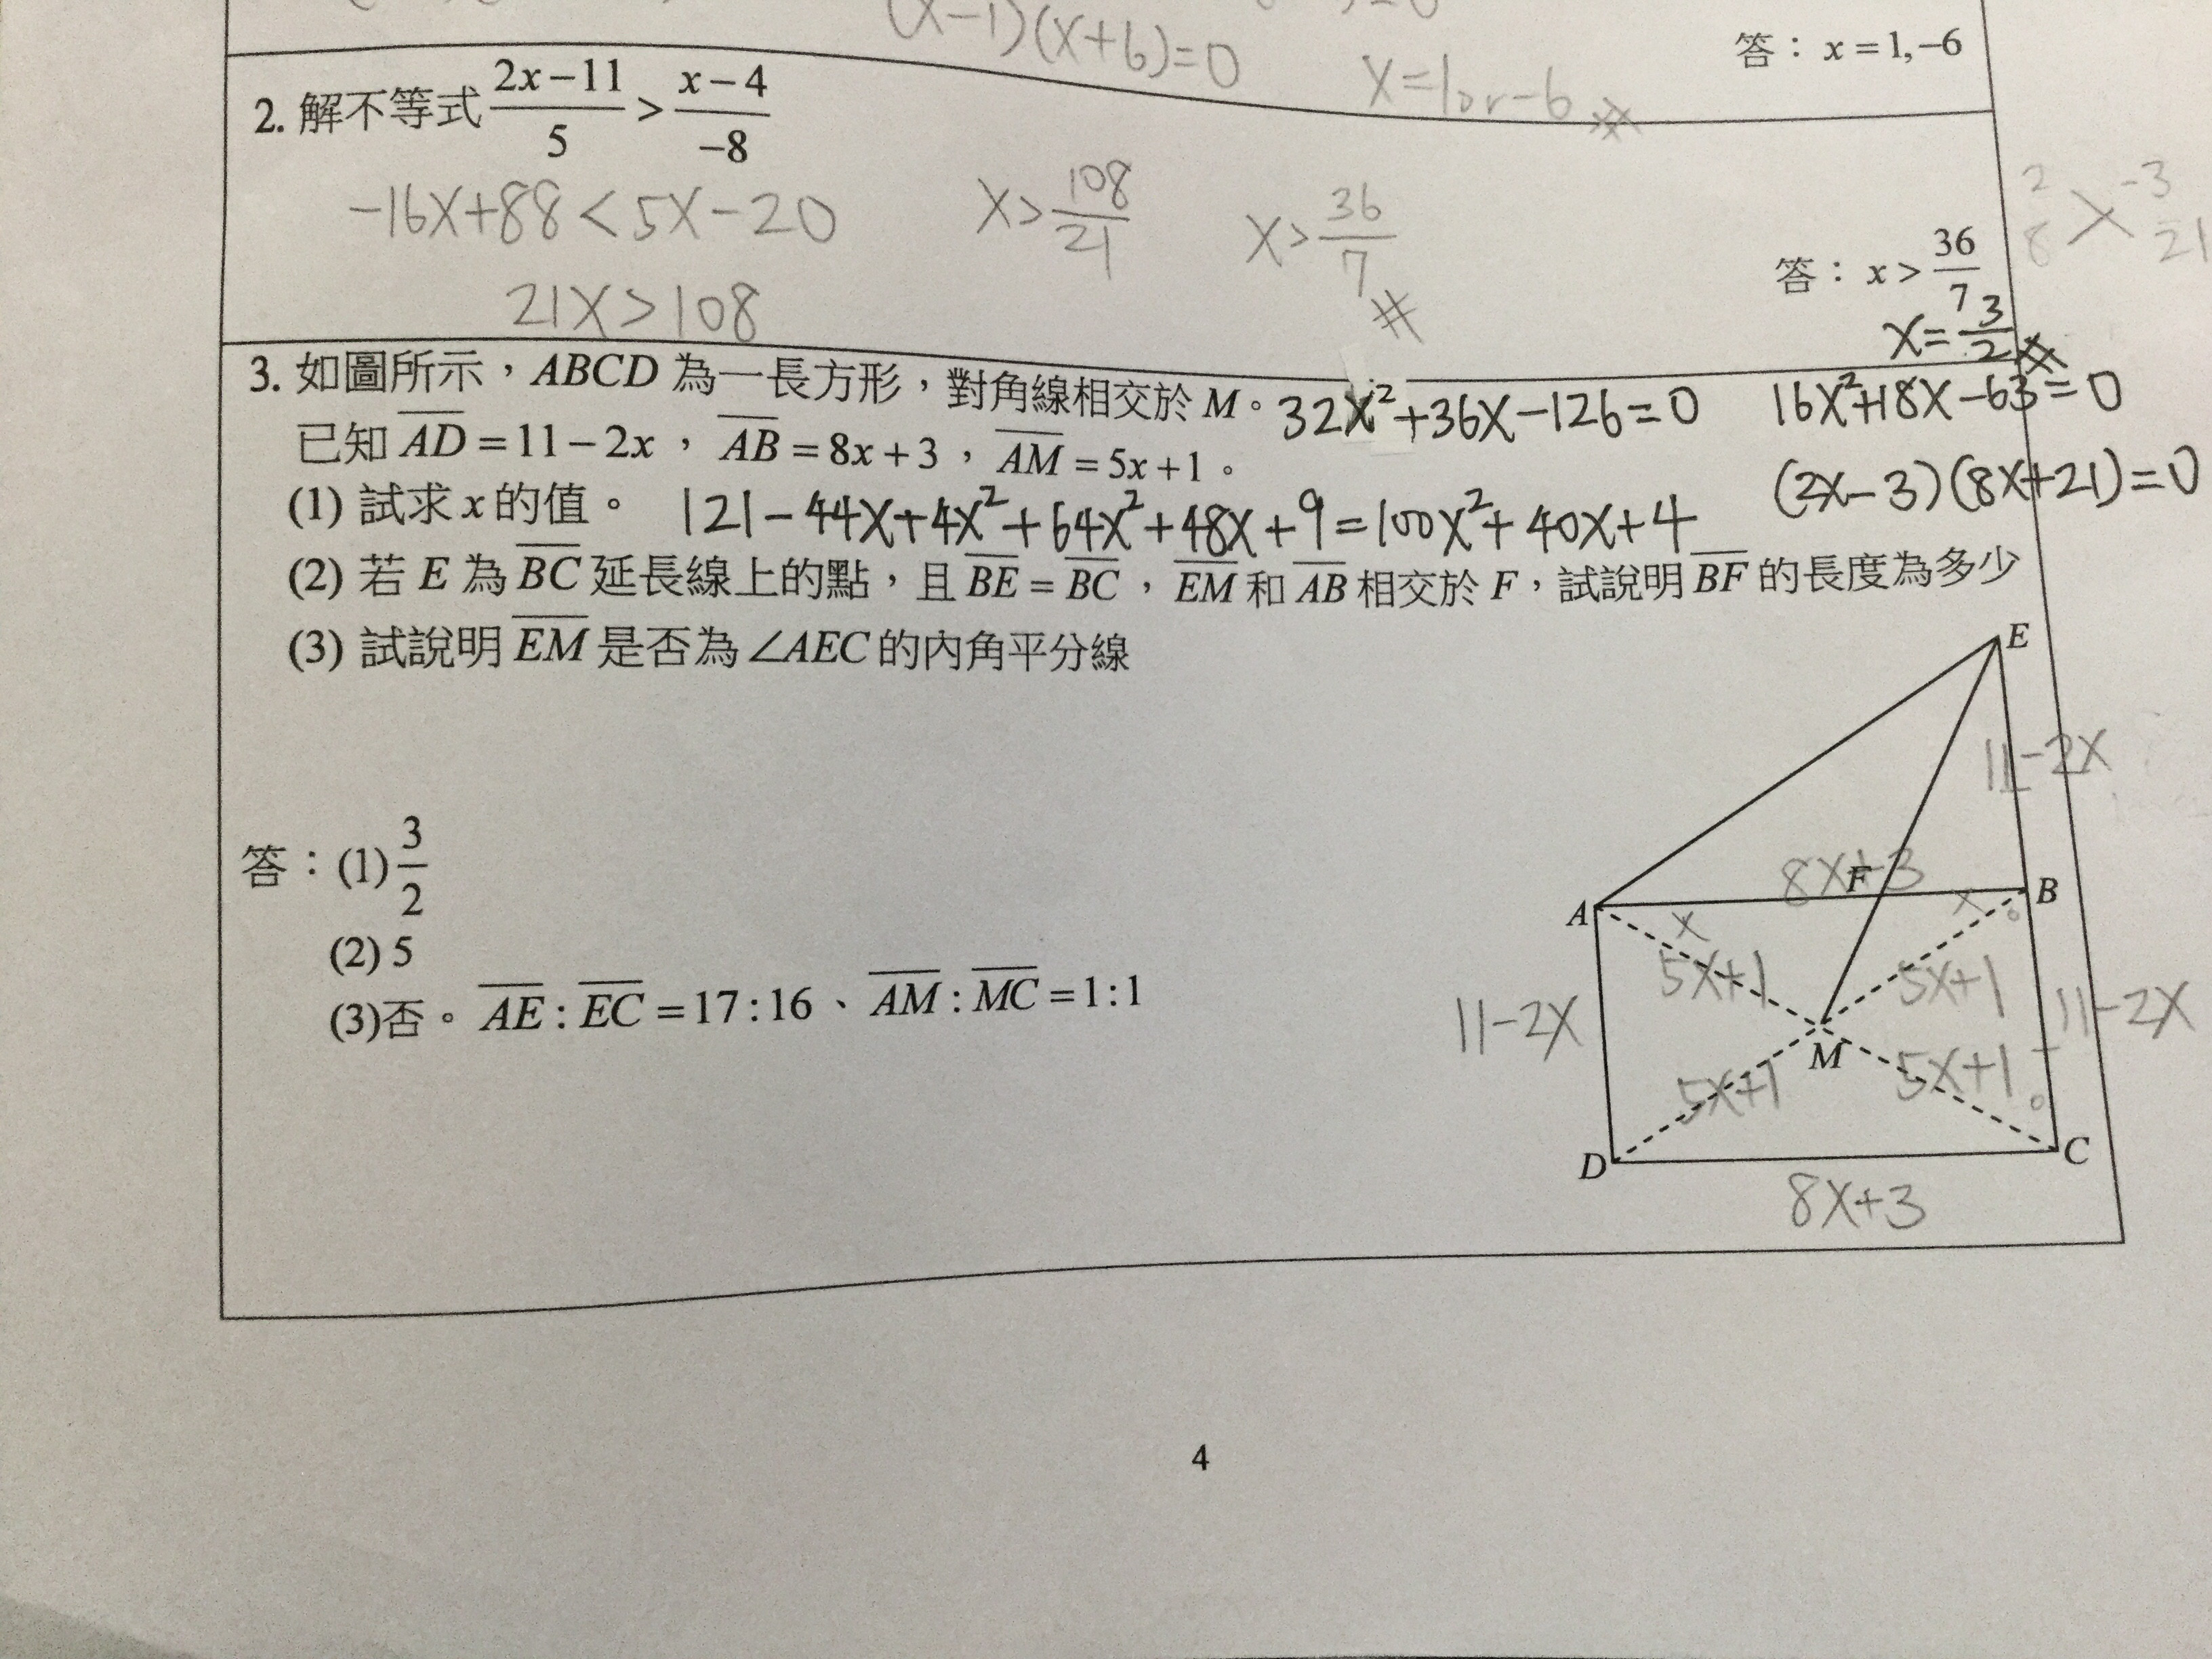 (x-1)(x+6)=0
x=1 or -6
答：x=1,-6
2. 解不等式 (2x-11)/5 > (x-4)/-8
-16x+88<5x-20
21x>108
x>108/21
x>36/7 #
答：x>36/7
2 -3
8 21
x=3/2
3. 如圖所示，ABCD 為一長方形，對角線相交於 M。
32x²+36x-126=0
16x²+18x-63=0
已知 AD=11-2x，AB=8x+3，AM=5x+1。
(2x-3)(8x+21)=0
(1) 試求 x 的值。
121-44x+4x²+64x²+48x+9=100x²+40x+4
(2) 若 E 為 BC 延長線上的點，且 BE=BC，EM 和 AB 相交於 F，試說明 BF 的長度為多少
(3) 試說明 EM 是否為∠AEC 的內角平分線
E
11-2x
8x+3
F
A
B
x
x
5x+1
5x+1
11-2x
11-2x
M
5x+1
5x+1
D
C
8x+3
答：(1) 3/2
(2) 5
(3)否。AE:EC=17:16、AM:MC=1:1
4